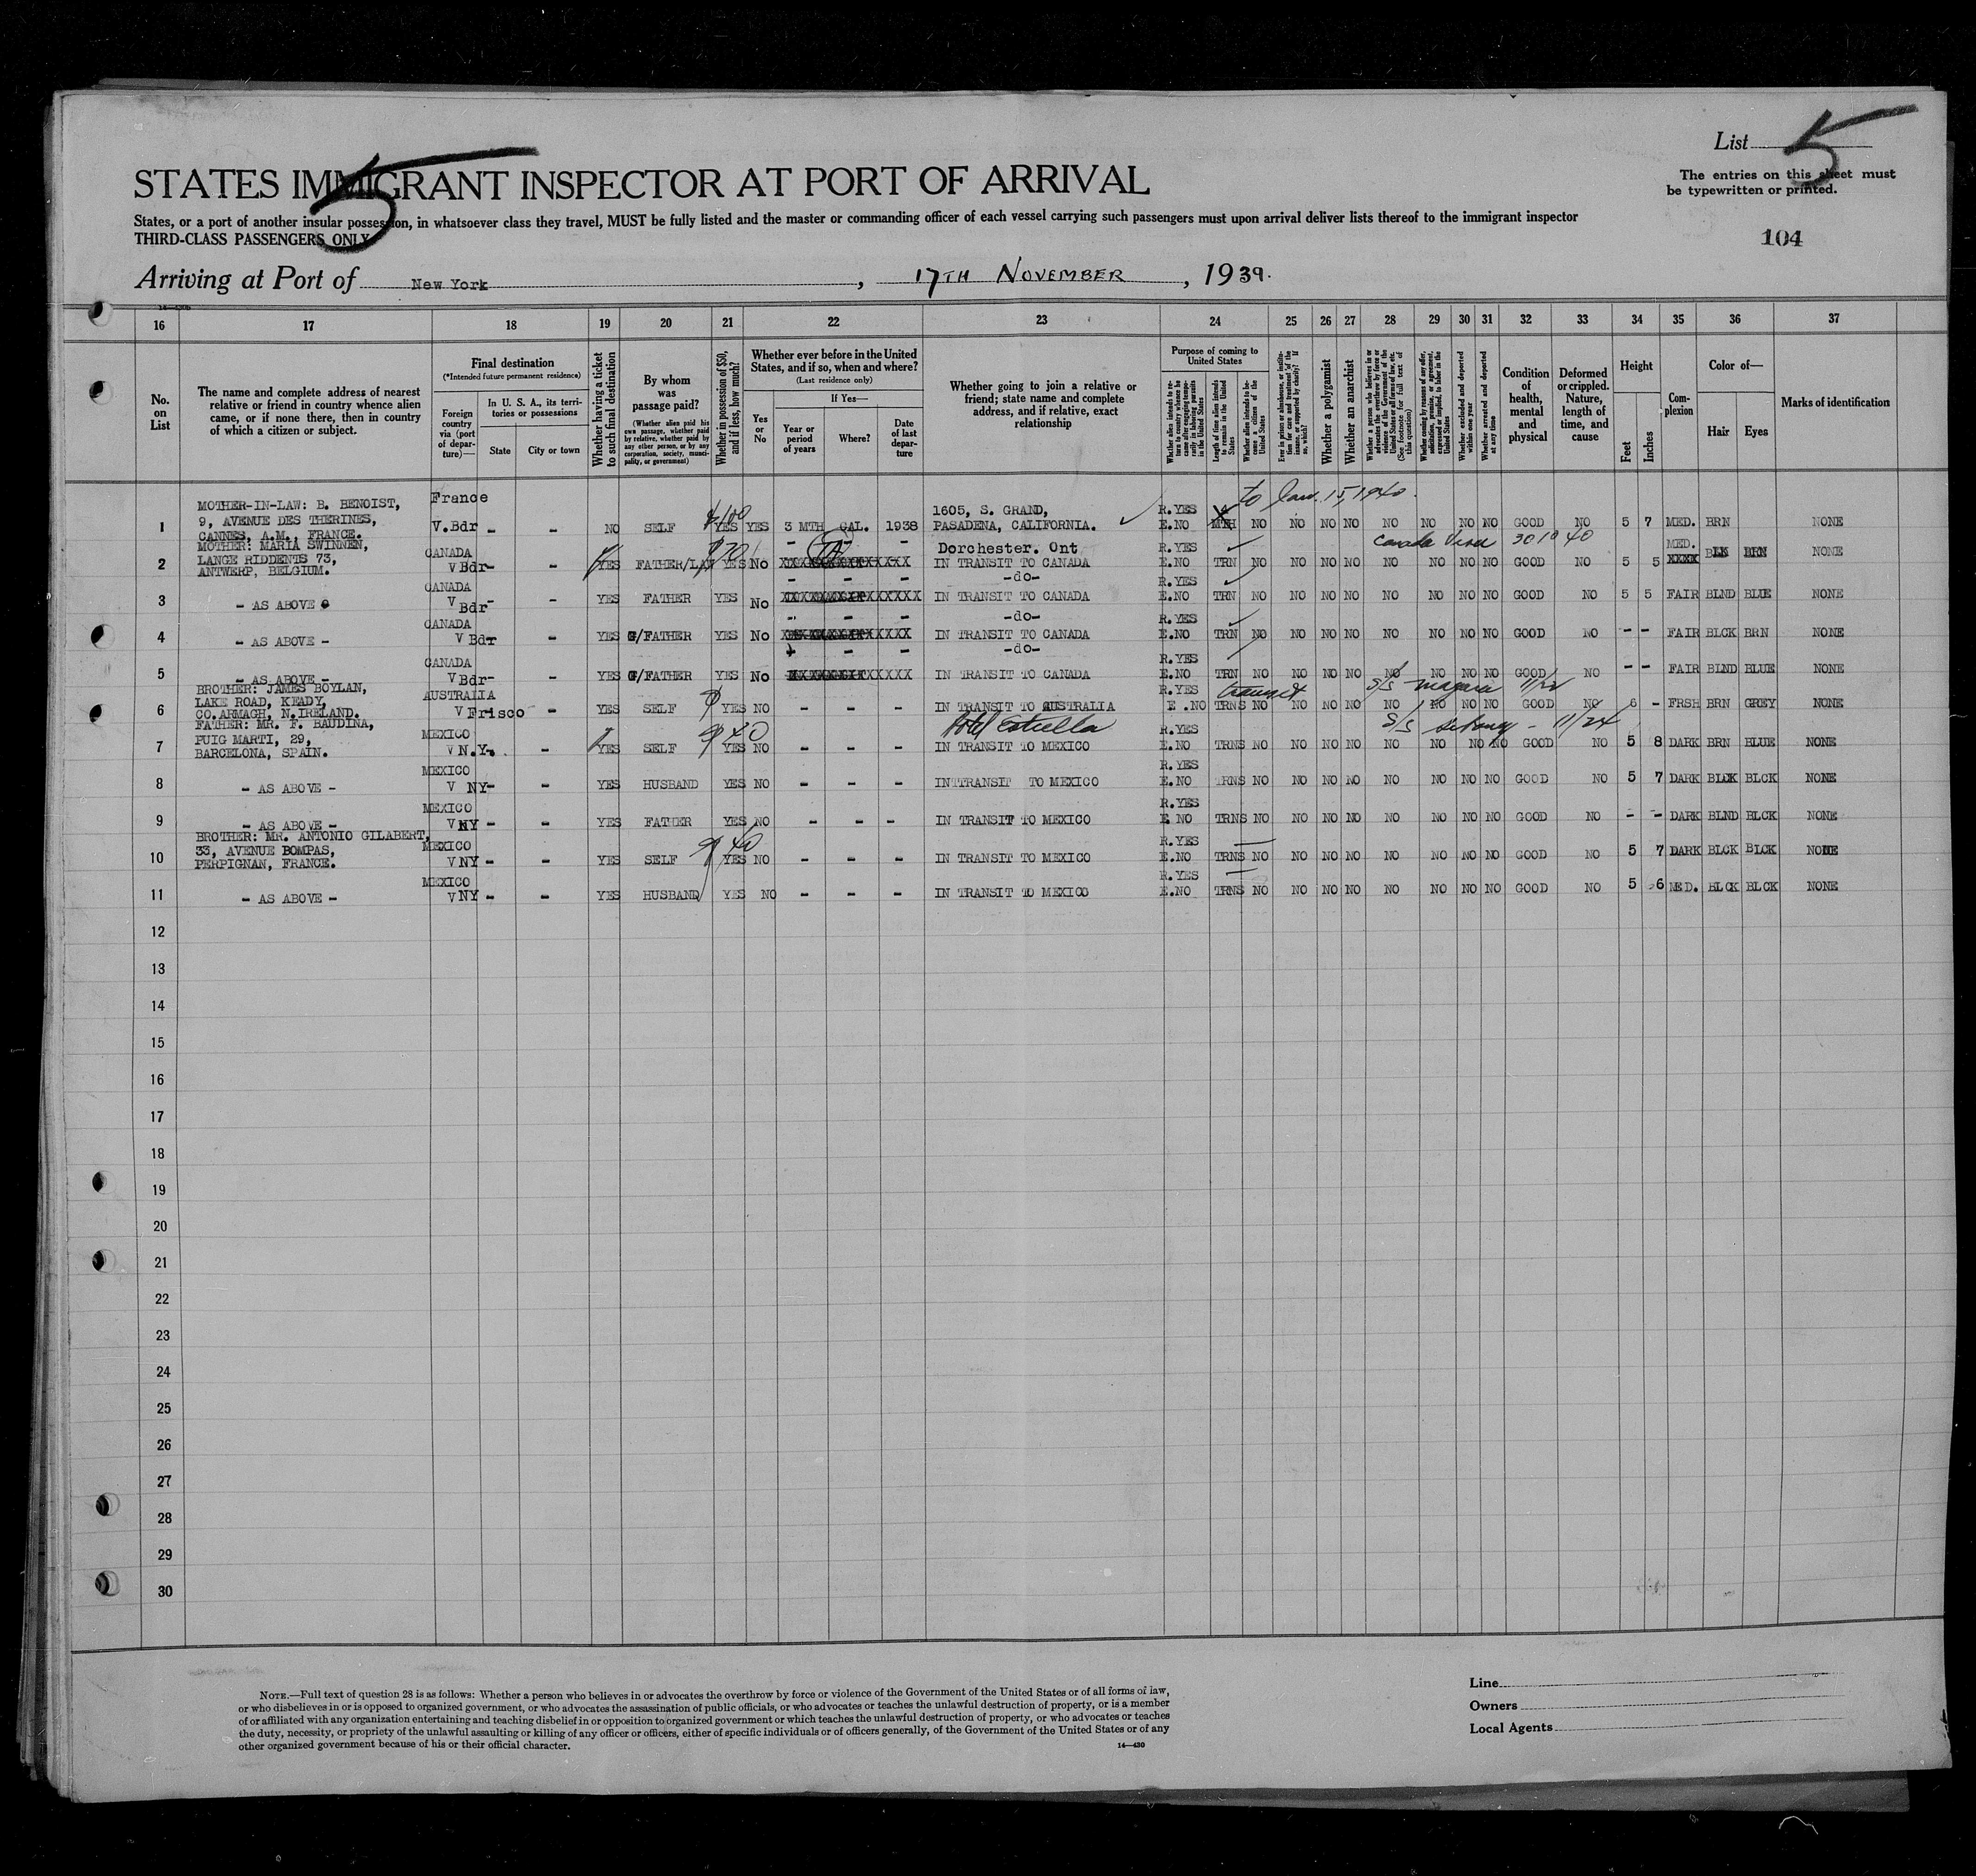 List 5
The entries on this sheet must
be typewritten or printed.
5
STATES IMMIGRANT INSPECTOR AT PORT OF ARRIVAL
States, or a port of another insular possession, in whatsoever class they travel, MUST be fully listed and the master or commanding officer of each vessel carrying such passengers must upon arrival deliver lists thereof to the immigrant inspector
THIRD-CLASS PASSENGERS ONLY
104
Arriving at Port of New York, 17TH NOVEMBER, 1939.
16 17 18 19 20 21 22 23 24 25 26 27 28 29 30 31 32 33 34 35 36 37
No. on List
The name and complete address of nearest relative or friend in country whence alien came, or if none there, then in country of which a citizen or subject.
Final destination
(*Intended future permanent residence)
Foreign country via (port of departure)—
In U. S. A., its territories or possessions
State
City or town
Whether having a ticket to such final destination
By whom was passage paid?
(Whether alien paid his own passage, whether paid by relative, whether paid by any other person, or by any corporation, society, municipality, or government)
Whether in possession of $50, and if less, how much?
Whether ever before in the United States, and if so, when and where?
(Last residence only)
Yes or No
If Yes—
Year or period of years
Where?
Date of last departure
Whether going to join a relative or friend; state name and complete address, and if relative, exact relationship
Purpose of coming to United States
Length of time alien intends to remain in the United States
Whether alien intends to become a citizen of the United States
Whether a polygamist
Whether an anarchist
Whether excluded and deported within one year
Whether arrested and deported at any time
Condition of health, mental and physical
Deformed or crippled. Nature, length of time, and cause
Height
Feet
Inches
Complexion
Color of—
Hair
Eyes
Marks of identification
to Jan. 15, 1940.
1 MOTHER-IN-LAW: B. BENOIST, 9, AVENUE DES THERINES, CANNES, A.M., FRANCE. France V.Bdr - - NO SELF $100 YES YES 3 MTH CAL. 1938 1605, S. GRAND, PASADENA, CALIFORNIA. R.YES E.NO MTH NO NO NO NO NO NO NO NO GOOD NO 5 7 MED. BRN NONE
Canada Visa 30 10 40
2 MOTHER: MARIA SWINNEN, LANGE RIDDENTS 73, ANTWERP, BELGIUM. CANADA V Bdr - - YES FATHER/LAW $70 YES No - - - Dorchester. Ont IN TRANSIT TO CANADA R.YES E.NO TRN NO NO NO NO NO NO NO NO GOOD NO 5 5 MED. BLK BRN NONE
3 - AS ABOVE - CANADA V Bdr - - YES FATHER YES No - - - -do- IN TRANSIT TO CANADA R.YES E.NO TRN NO NO NO NO NO NO NO NO GOOD NO 5 5 FAIR BLND BLUE NONE
4 - AS ABOVE - CANADA V Bdr - YES G/FATHER YES No - - - -do- IN TRANSIT TO CANADA R.YES E.NO TRN NO NO NO NO NO NO NO NO GOOD NO - - FAIR BLCK BRN NONE
5 - AS ABOVE - CANADA V Bdr - - YES G/FATHER YES No - - - -do- IN TRANSIT TO CANADA R.YES E.NO TRN NO NO NO NO NO NO NO NO GOOD NO - - FAIR BLND BLUE NONE
transit S/S Niagara 11/22
6 BROTHER: JAMES BOYLAN, LAKE ROAD, KEADY, CO.ARMAGH, N.IRELAND. AUSTRALIA V Frisco - YES SELF YES NO - - - IN TRANSIT TO AUSTRALIA R.YES E.NO TRNS NO NO NO NO NO NO NO NO GOOD NO 6 - FRSH BRN GREY NONE
Hotel Estrella S/S Siboney - 11/24
7 FATHER: MR. F. BAUDINA, PUIG MARTI, 29, BARCELONA, SPAIN. MEXICO V N.Y. - YES SELF YES NO - - - IN TRANSIT TO MEXICO R.YES E.NO TRNS NO NO NO NO NO NO NO NO GOOD NO 5 8 DARK BRN BLUE NONE
8 - AS ABOVE - MEXICO V NY - - YES HUSBAND YES NO - - - IN TRANSIT TO MEXICO R.YES E.NO TRNS NO NO NO NO NO NO NO NO GOOD NO 5 7 DARK BLCK BLCK NONE
9 - AS ABOVE - MEXICO V NY - - YES FATHER YES NO - - - IN TRANSIT TO MEXICO R.YES E.NO TRNS NO NO NO NO NO NO NO NO GOOD NO - - DARK BLND BLCK NONE
10 BROTHER: MR. ANTONIO GILABERT, 33, AVENUE BOMPAS, PERPIGNAN, FRANCE. MEXICO V NY - - YES SELF 40 YES NO - - - IN TRANSIT TO MEXICO R.YES E.NO TRNS NO NO NO NO NO NO NO NO GOOD NO 5 7 DARK BLCK BLCK NONE
11 - AS ABOVE - MEXICO V NY - - YES HUSBAND YES NO - - - IN TRANSIT TO MEXICO R.YES E.NO TRNS NO NO NO NO NO NO NO NO GOOD NO 5 6 MED. BLCK BLCK NONE
12
13
14
15
16
17
18
19
20
21
22
23
24
25
26
27
28
29
30
NOTE.—Full text of question 28 is as follows: Whether a person who believes in or advocates the overthrow by force or violence of the Government of the United States or of all forms of law,
or who disbelieves in or is opposed to organized government, or who advocates the assassination of public officials, or who advocates or teaches the unlawful destruction of property, or is a member
of or affiliated with any organization entertaining and teaching disbelief in or opposition to organized government or which teaches the unlawful destruction of property, or who advocates or teaches
the duty, necessity, or propriety of the unlawful assaulting or killing of any officer or officers, either of specific individuals or of officers generally, of the Government of the United States or of any
other organized government because of his or their official character.
14—430
Line
Owners
Local Agents